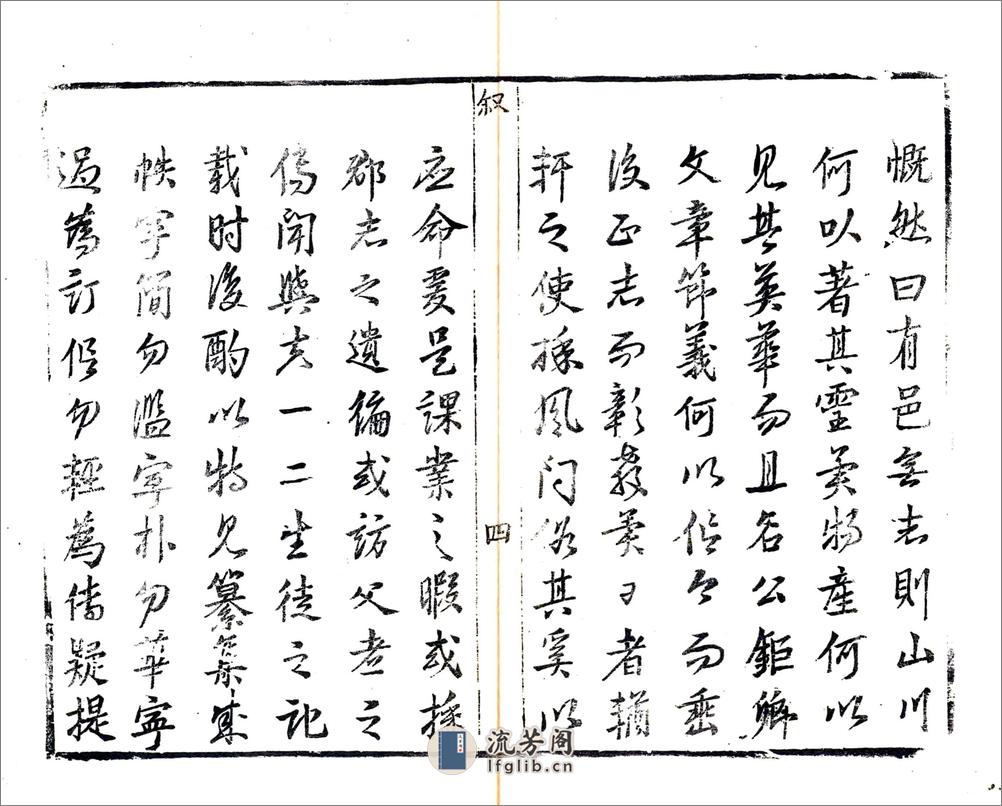 慨然曰有邑无志則山川
何以著其霊異物產何以
見其英華而且名公鉅卿
文章節義何以信今而垂
後正志而彰教異日者輶
軒之使採風问俗其奚以
叙
四
应命爰是課業之暇或採
郡志之遺編或訪父老之
傳聞與夫一二生徒之記
载时復酌以特见纂集成
帙宁简勿濫宁朴勿華寧
過為訂信勿輕為傳疑提
流芳阁
lfglib.cn